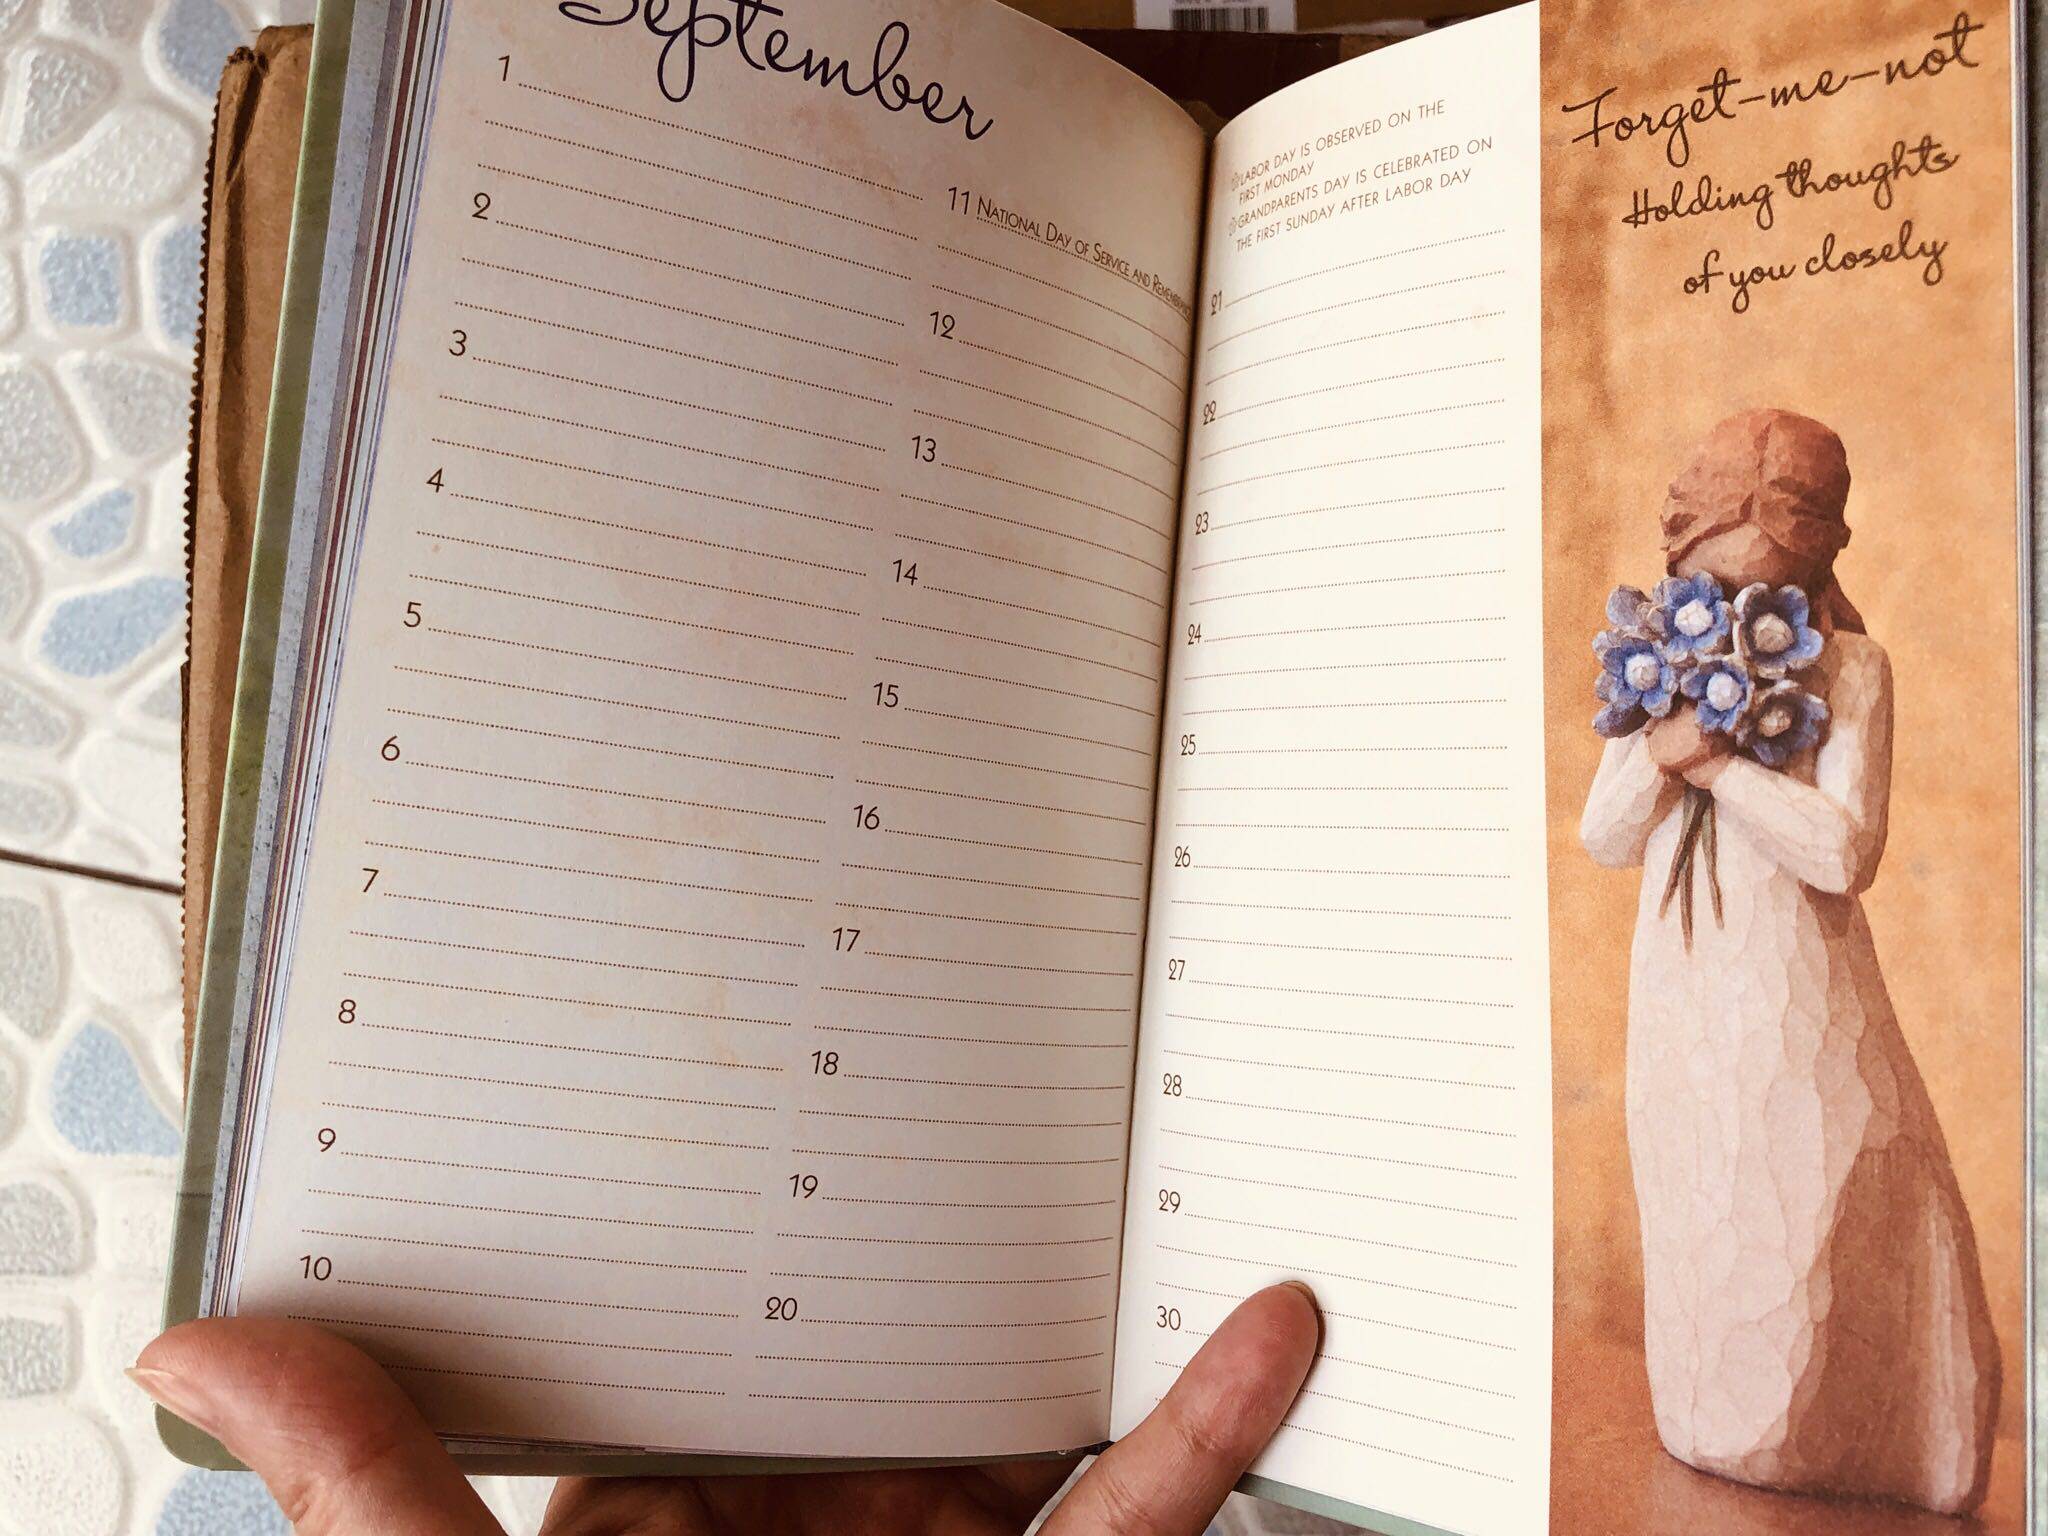 September
1
2
3
4
5
6
7
8
9
10
11 NATIONAL DAY OF SERVICE AND REMEMBRANCE
12
13
14
15
16
17
18
19
20
LABOR DAY IS OBSERVED ON THE
FIRST MONDAY
GRANDPARENTS DAY IS CELEBRATED ON
THE FIRST SUNDAY AFTER LABOR DAY
21
22
23
24
25
26
27
28
29
30
Forget-me-not
Holding thoughts
of you closely